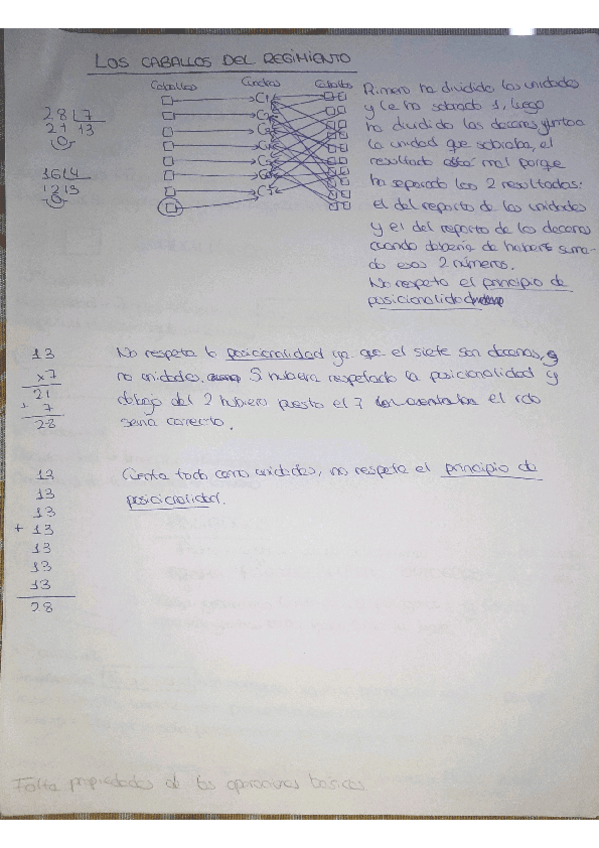 LOS CABALLOS DEL REGIMIENTO
Caballos Cuadras Caballos
28 | 7
21 13
0
16 | 4
12 13
0
C1
C2
C3
C4
C5
C6
C7
Primero ha dividido las unidades
y le ha sobrado 1, luego
ha dividido las decenas junto a
la unidad que sobraba, el
resultado está mal porque
ha separado los 2 resultados:
el del reparto de las unidades
y el del reparto de las decenas
cuando debería de haber suma-
do esos 2 números.
No respeta el principio de
posicionalidad
13
x7
21
+ 7
28
No respeta la posicionalidad ya que el siete son decenas, y
no unidades. Si hubiera respetado la posicionalidad y
debajo del 2 hubiera puesto el 7 el rdo
sería correcto.
13
13
13
+ 13
13
13
13
28
Cuenta todo como unidades, no respeta el principio de
posicionalidad.
Falta propiedades de las operaciones básicas